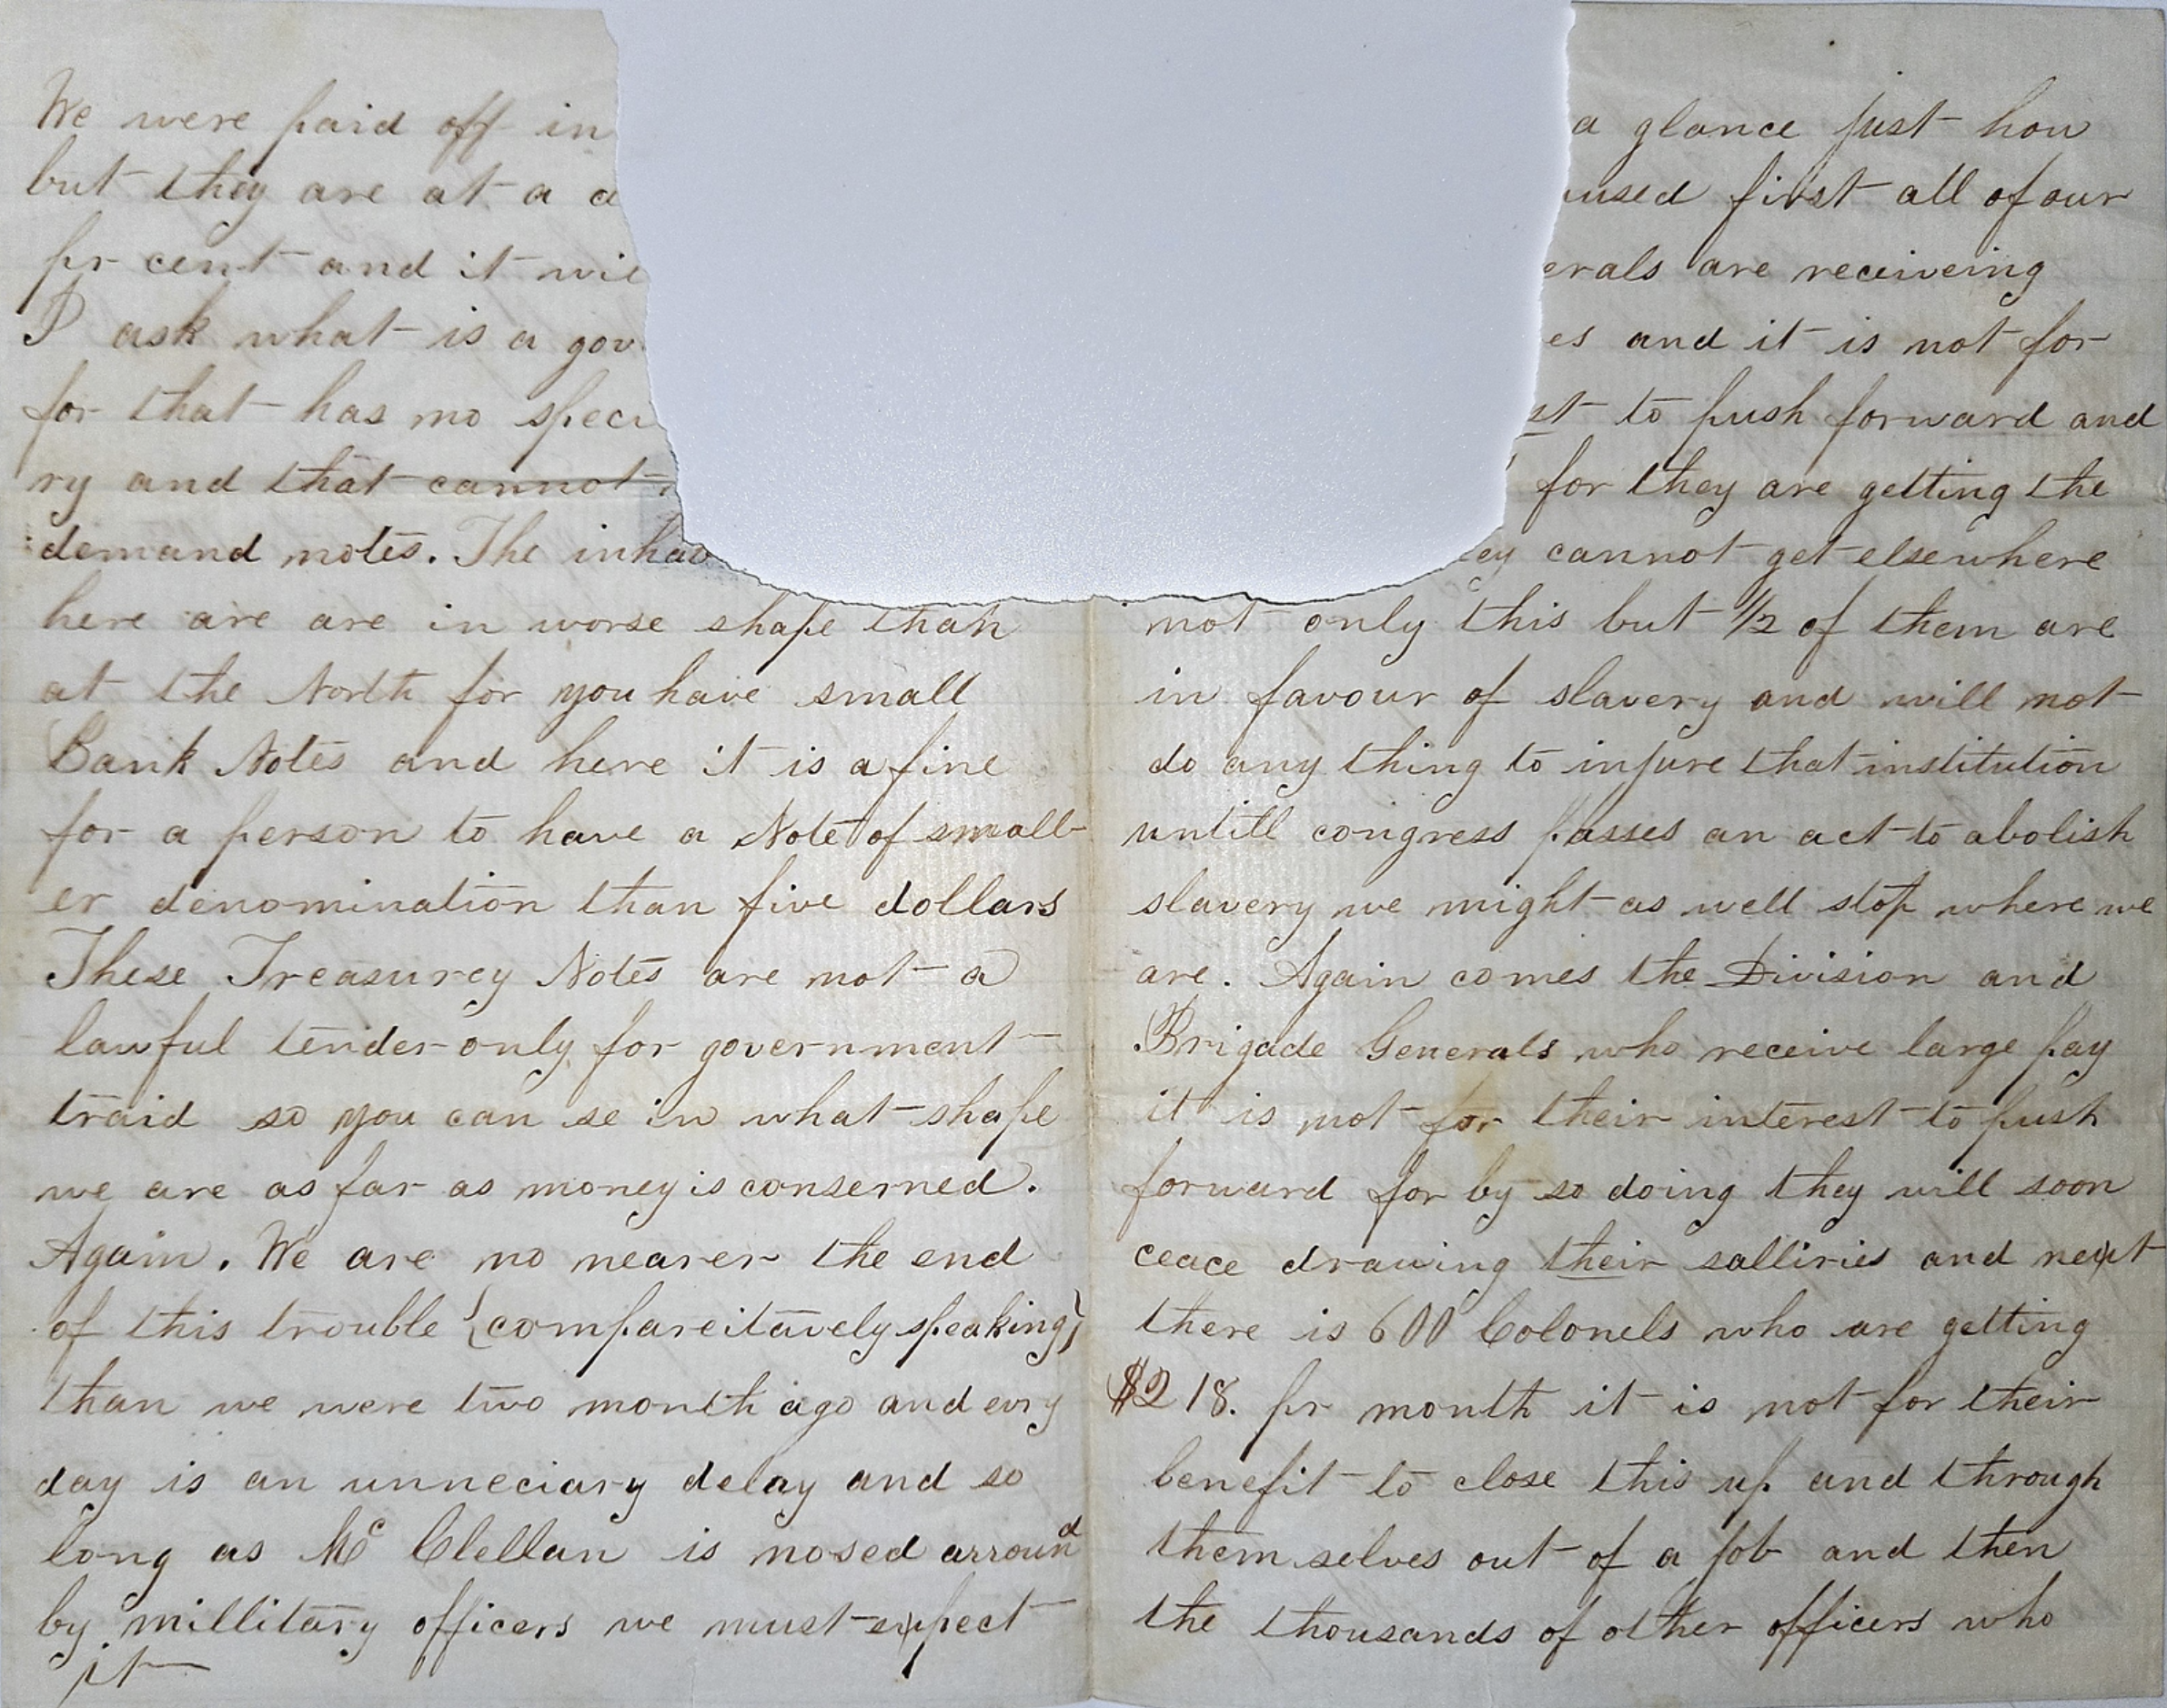 We were paid off in
but they are at a
pr cent and it
I ask what is a
for that has no
ry and that cannot
demand notes. The
here are are in worse shape than
at the North for you have small
Bank Notes and here it is a fine
for a person to have a Note of small-
er denomination than five dollars
These Treasurey Notes are not a
lawful tender only for government
traid so you can se in what shape
we are as far as money is conserned.
Again. We are no nearer the end
of this trouble {compareitavely speaking}
than we were two month ago and evry
day is an unneciary delay and so
long as Mc Clellan is nosed arround
by millitary officers we must expect
it
a glance just how
first all of our
are receiveing
and it is not for
to push forward and
for they are getting the
cannot get elsewhere
not only this but 1/2 of them are
in favour of slavery and will not
do any thing to injure that institution
untill congress passes an act to abolish
slavery we might as well stop where we
are. Again comes the Division and
Brigade Generals who receive large pay
it is not for their interest to push
forward for by so doing they will soon
ceace drawing their salliries and next
there is 600 Colonels who are getting
$218. pr month it is not for their
benefit to close this up and through
them selves out of a job and then
the thousands of other officers who